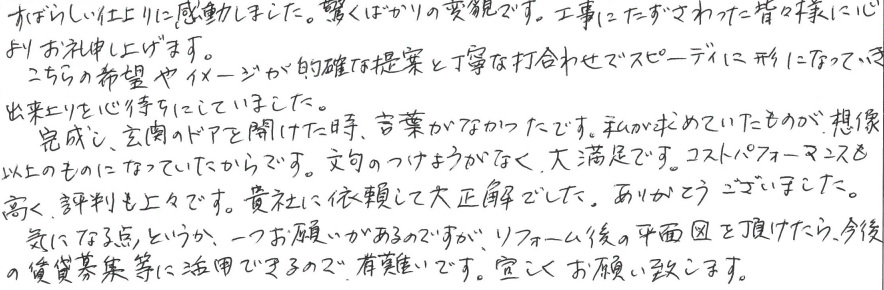 すばらしい仕上りに感動しました。驚くばかりの変貌です。工事にたずさわった皆々様に心
よりお礼申し上げます。
こちらの希望やイメージが的確な提案と丁寧な打合わせでスピーディに形になっていき
出来上りを心待ちにしていました。
完成し、玄関のドアを開けた時、言葉がなかったです。私が求めていたものが、想像
以上のものになっていたからです。文句のつけようがなく、大満足です。コストパフォーマンスも
高く、評判も上々です。貴社に依頼して大正解でした。ありがとうございました。
気になる点、というか、一つお願いがあるのですが、リフォーム後の平面図を頂けたら、今後
の賃貸募集等に活用できるので、有難いです。宜しくお願い致します。